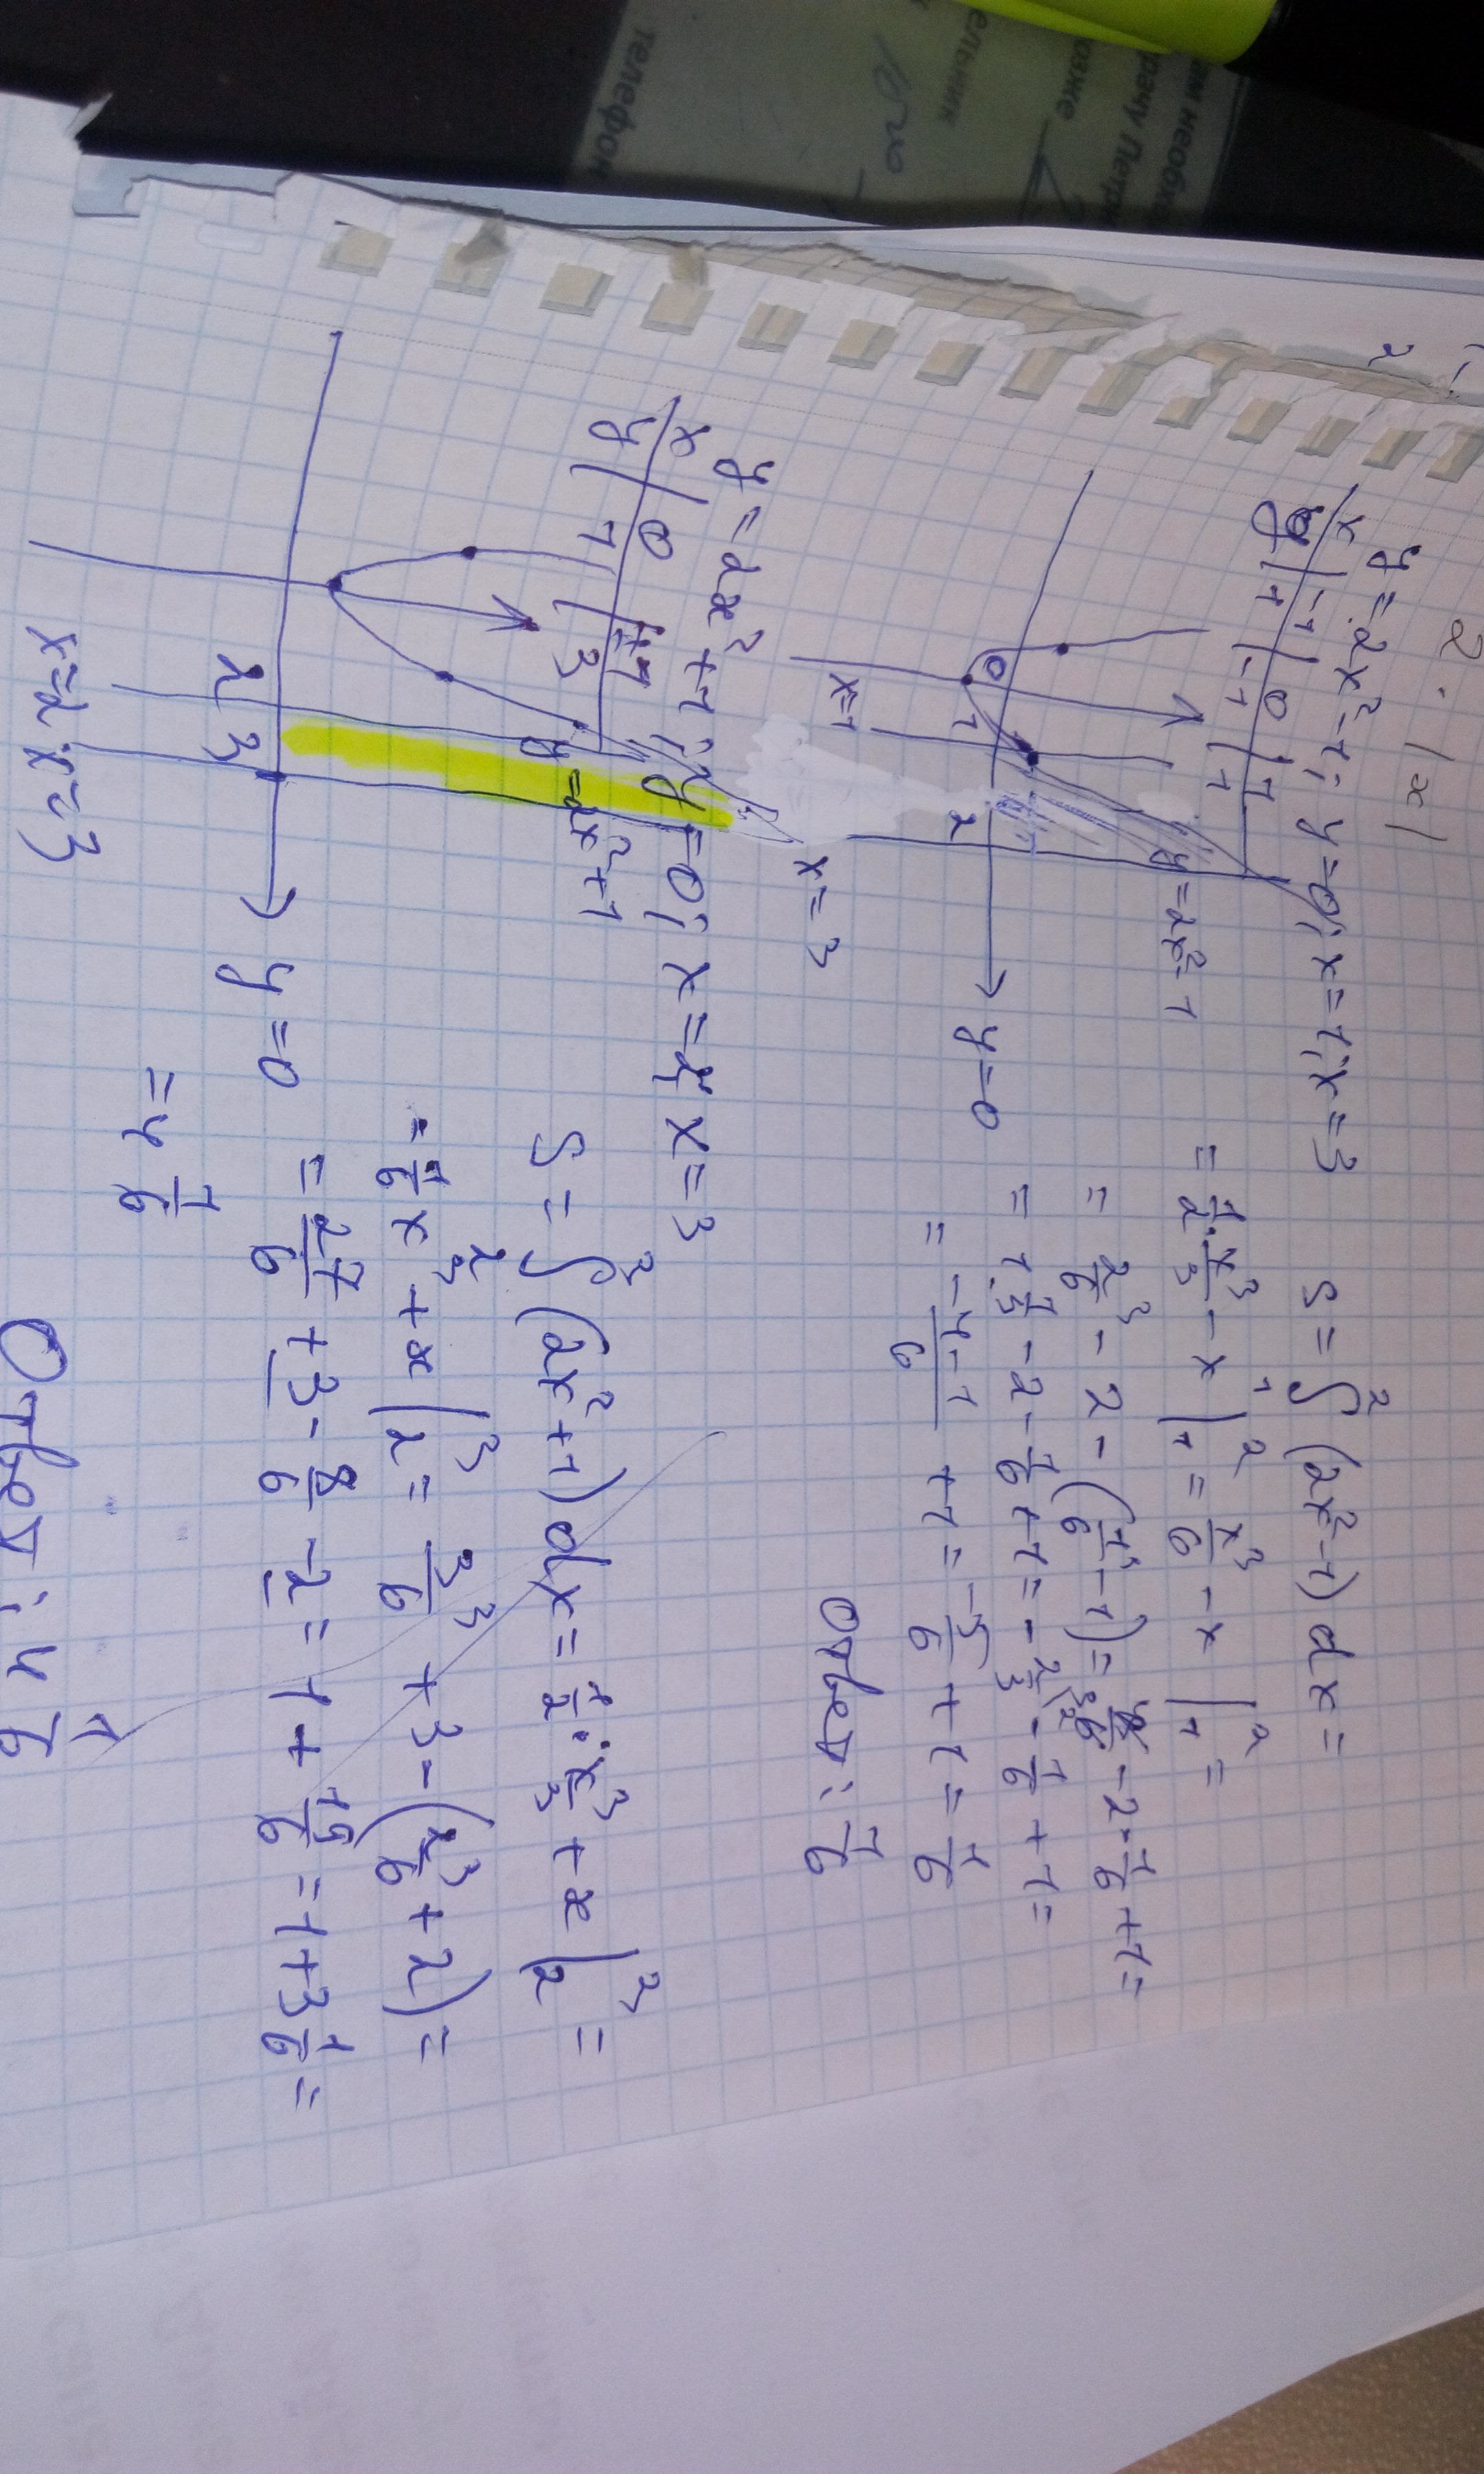 2.
y = 2x² - 1; y = 0; x = 1; x = 3
x | -1 | 0 | 1
y | 1 | -1 | 1
y = 2x² - 1
0 1 2
x=1
x = 3
y = 0
S = ∫₁² (2x² - 1) dx =
= 1/2 · x³/3 - x |₁² = x³/6 - x |₁² =
= 2³/6 - 2 - (1³/6 - 1) = 8/6 - 2 - 1/6 + 1 =
= 1·1/3 - 2 - 1/6 + 1 = - 2/3 - 1/6 + 1 =
= -4-1/6 + 1 = -5/6 + 1 = 1/6
Ответ: 1/6
y = 2x² + 1; y = 0; x = 2; x = 3
x | 0 | ±1
y | 1 | 3
y = 2x² + 1
2 3
y = 0
x=2; x=3
S = ∫₂³ (2x² + 1) dx = 1/2 · x³/3 + x |₂³ =
= 1/6 x³ + x |₂³ = 3³/6 + 3 - (2³/6 + 2) =
= 27/6 + 3 - 8/6 - 2 = 1 + 19/6 = 1 + 3 1/6 =
= 4 1/6
Ответ: 4 1/6
телефон
ельник
озже
рачу Петри
ам необх